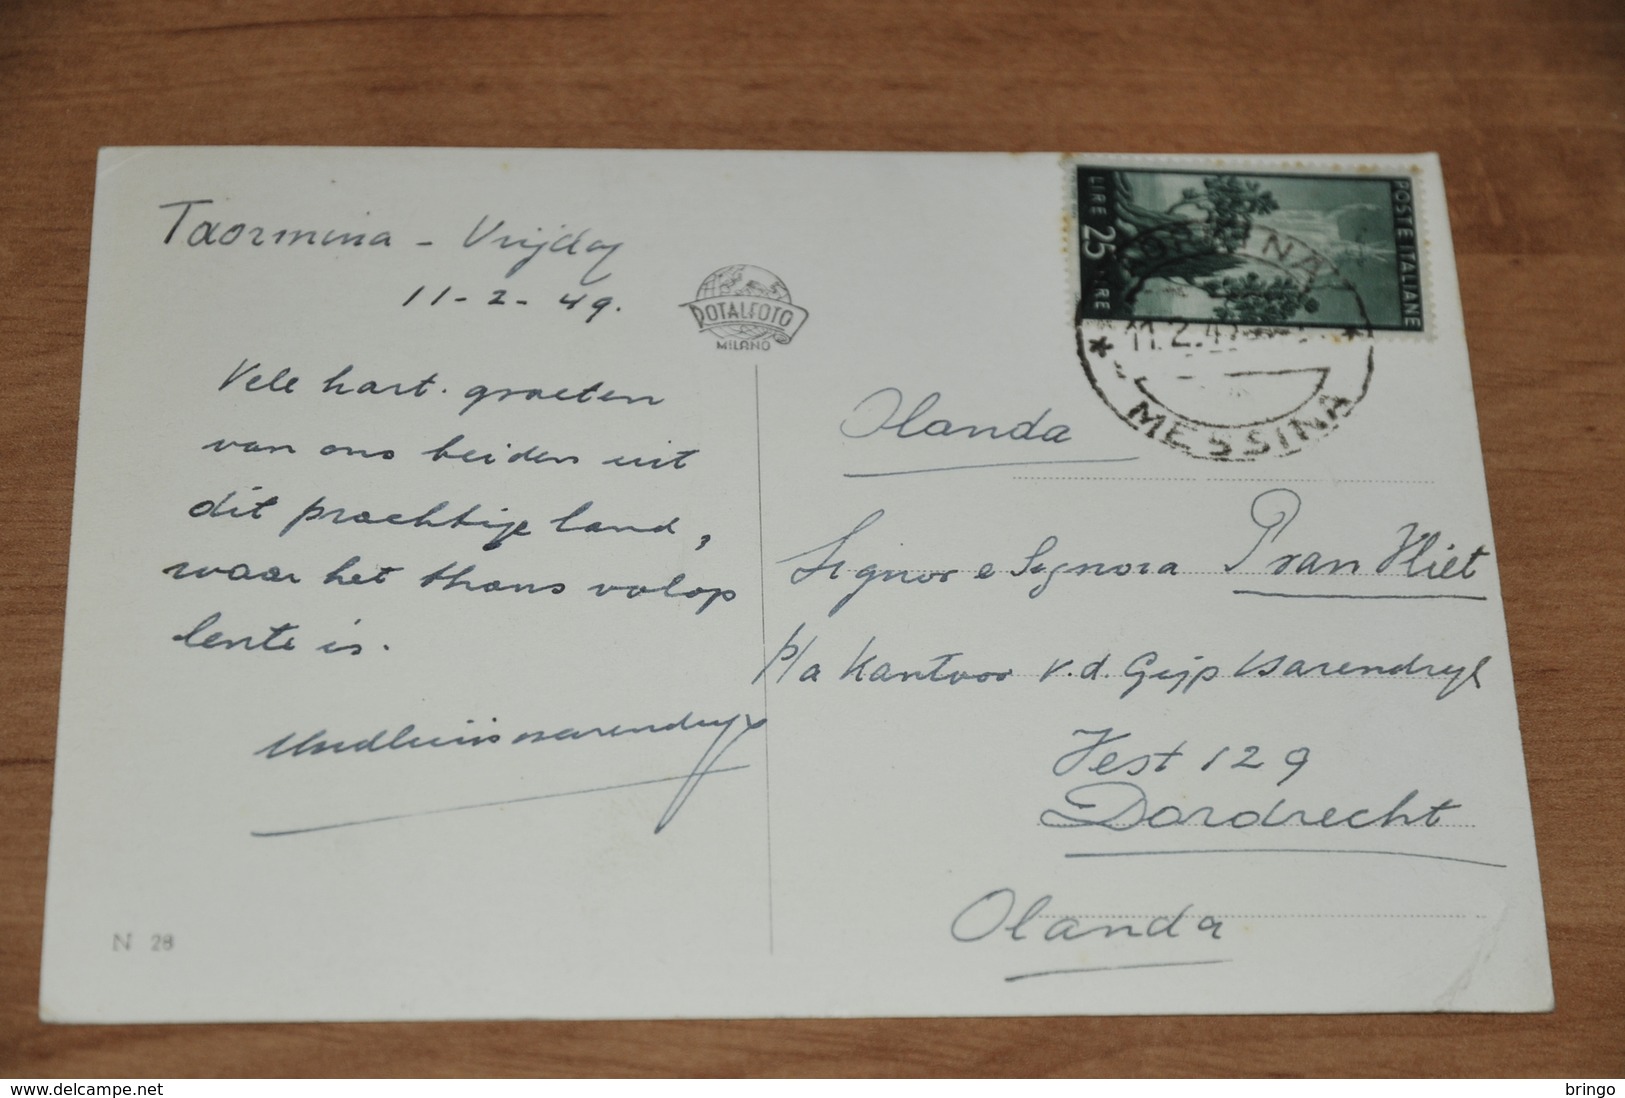 Taormina - Vrijdag
11-2-49.
ROTALFOTO
MILANO
Vele hart. groeten
van ons beiden uit
dit prachtige land,
waar het thans volop
lente is.
N 28
POSTE ITALIANE
LIRE 25 LIRE
11.2.49
MESSINA
Olanda
Signor e Signora P van Vliet
p/a Kantoor v.d. Gijp Warendryl
Vest 129
Dordrecht
Olanda
www.delcampe.net
bringo